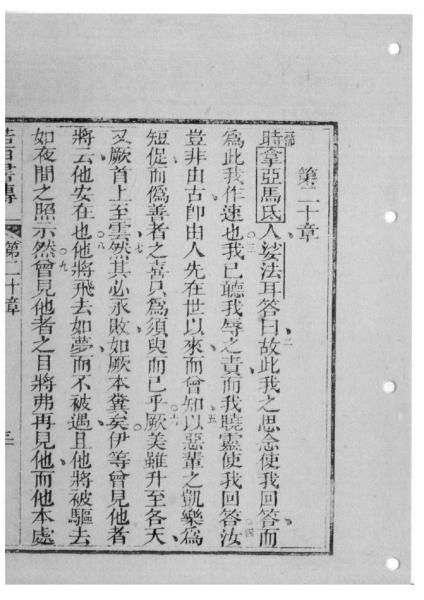 第二十章
一節時拿亞馬氏人娑法耳答曰故此我之思念使我回答而
為此我作速也我已聽我辱之責而我曉靈使我回答汝
豈非由古即由人先在世以來而曾知以惡輩之凱樂為
短促而偽善者之喜只為須臾而已乎厥美雖升至各天
及厥首上至雲然其必永敗如厥本糞矣伊等曾見他者
將云他安在也他將飛去如夢而不被遇且他將被驅去
如夜間之照示然曾見他者之目將弗再見他而他本處
第二十章